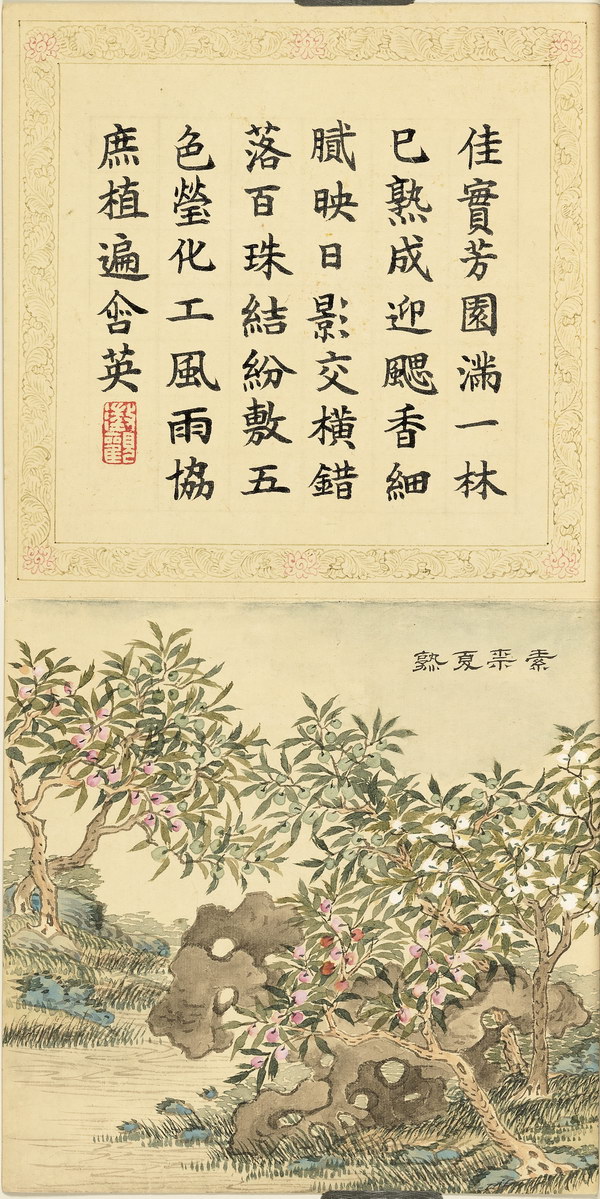 佳實芳園滿一林
已熟成迎颸香細
膩映日影交橫錯
落百珠結紛敷五
色瑩化工風雨協
庶植遍含英
素柰夏熟